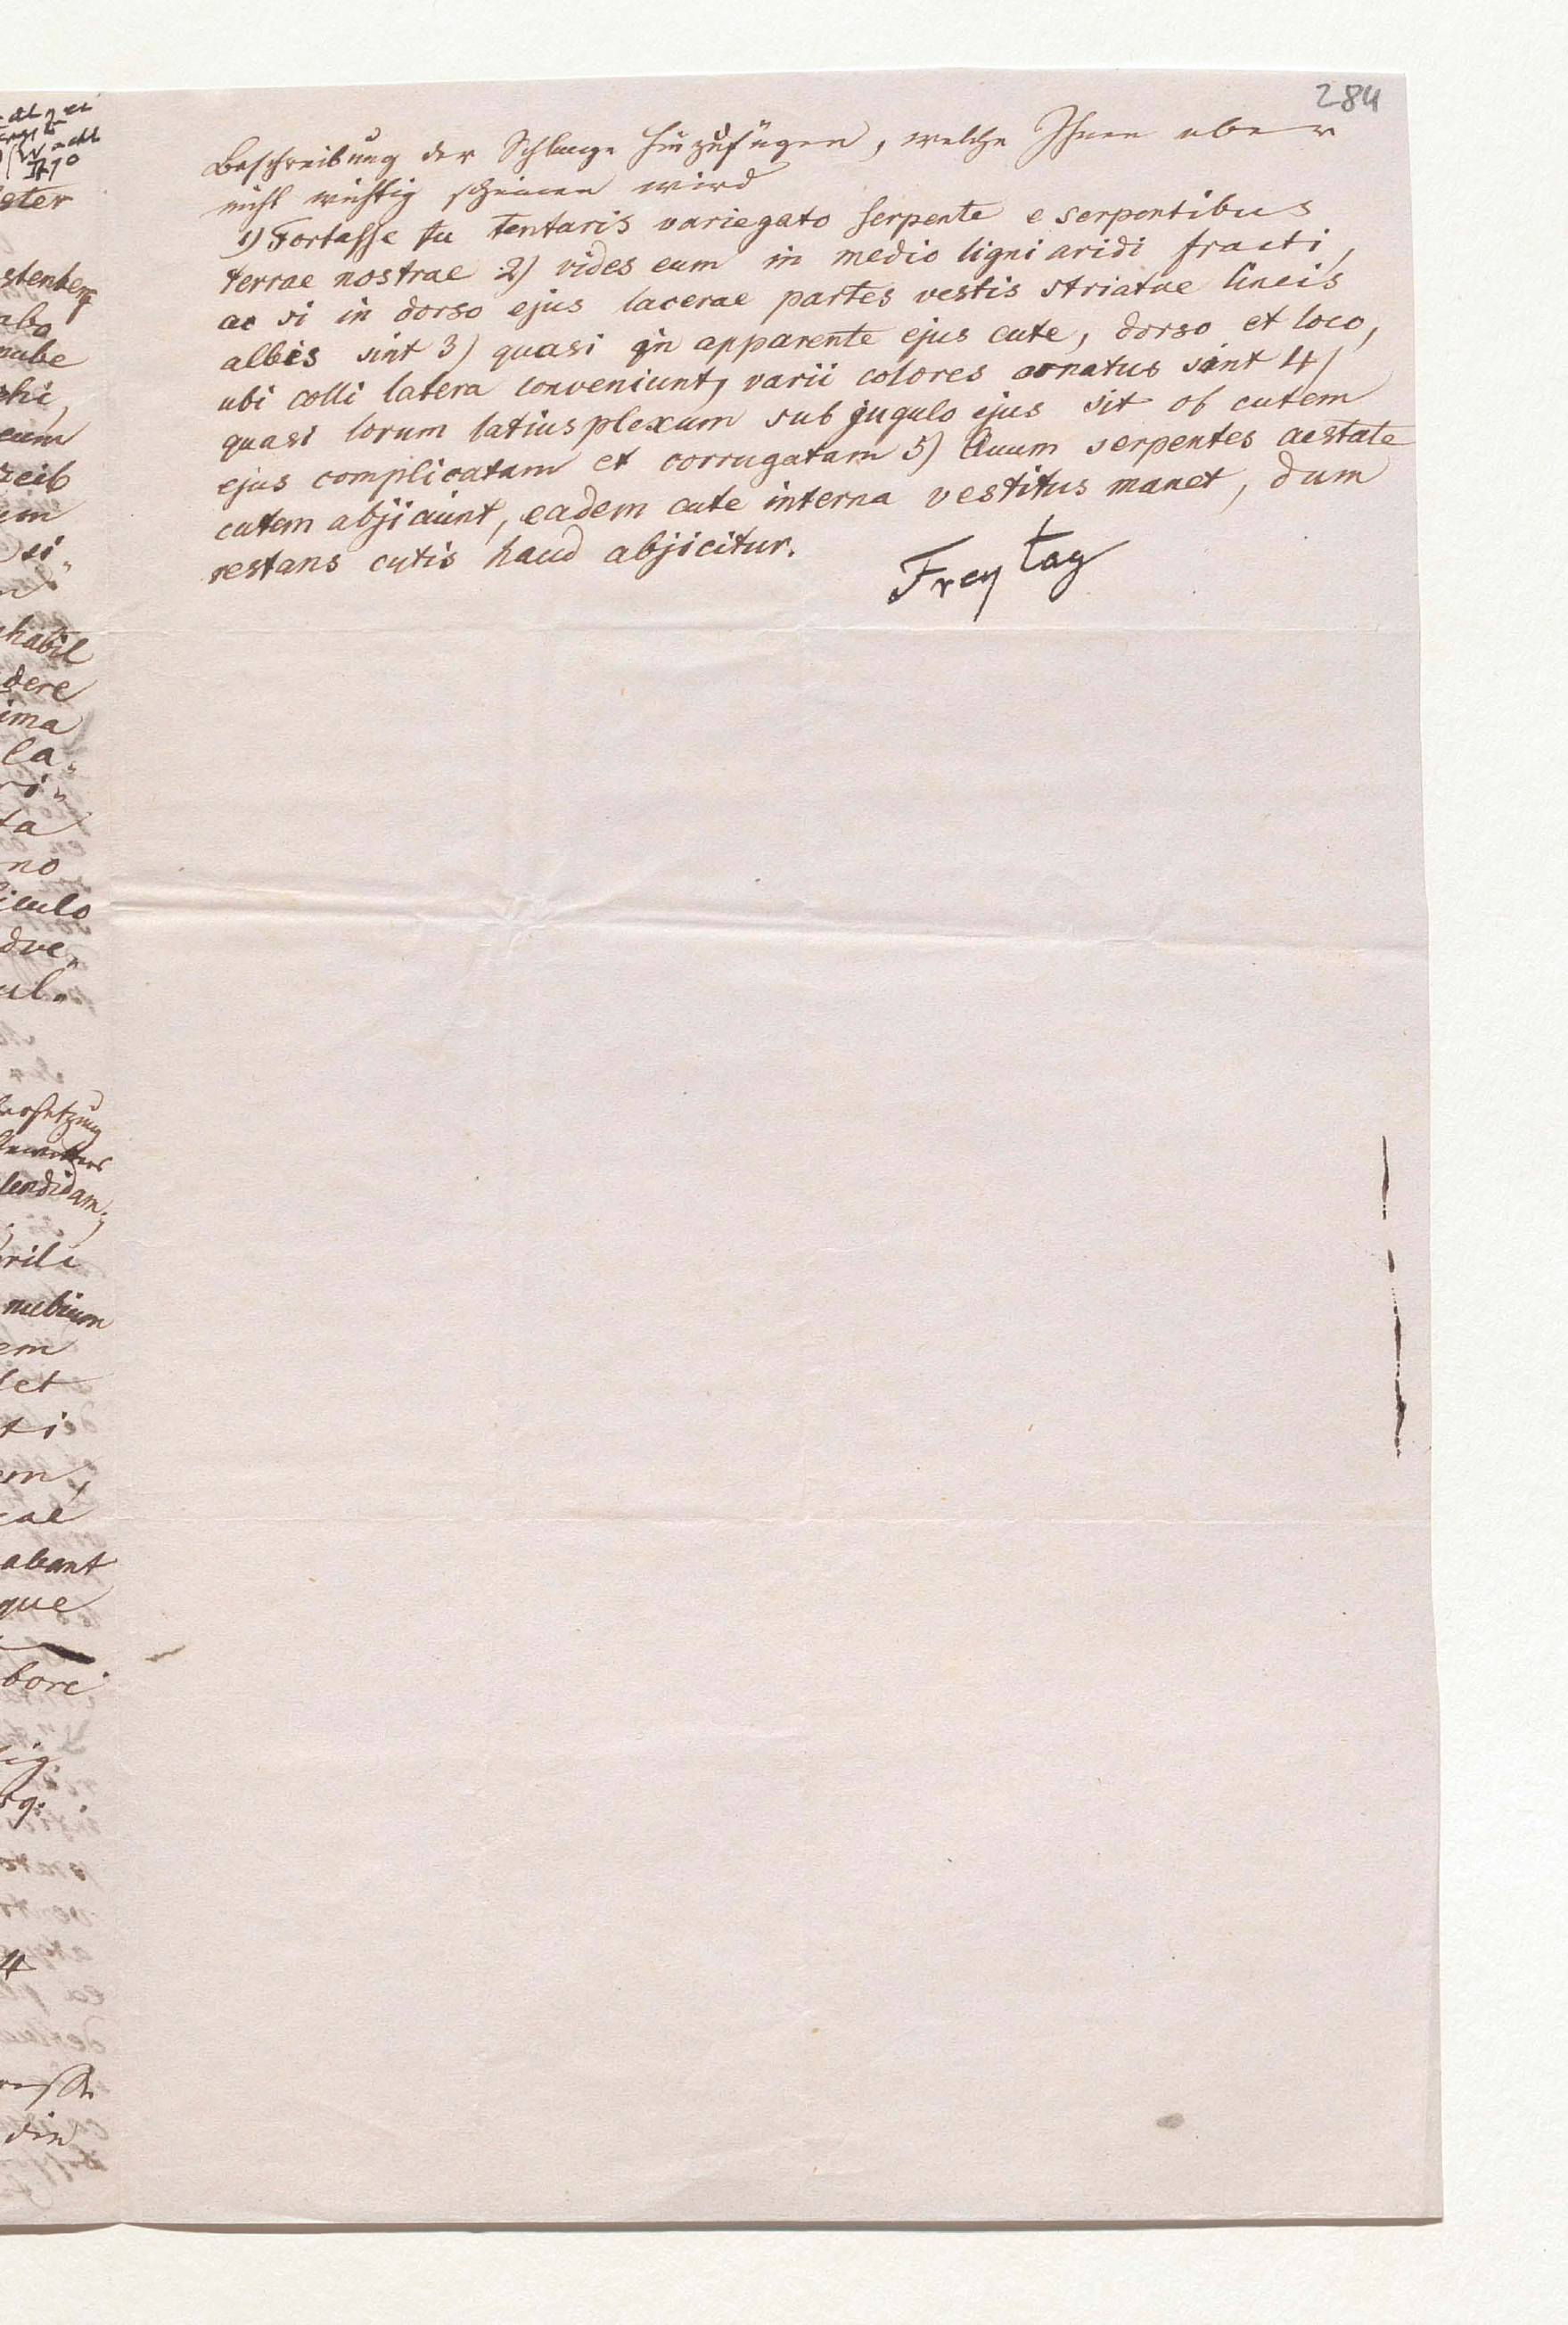 284
Beschreibung der Schlange hinzufügen, welche Ihnen aber
nicht wichtig scheinen wird
1) Fortasse tu tentaris variegato serpente e serpentibus
terrae nostrae 2) vides eum in medio ligni aridi fracti,
ac si in dorso ejus lacerae partes vestis striatae lineis
albis sint 3) quasi in apparente ejus cute, dorso et loco,
ubi colli latera conveniunt, varii colores ornatus sint 4)
quasi lorum latius plexum sub jugulo ejus sit ob cutem
ejus complicatam et corrugatam 5) Quum serpentes aestate
cutem abjiciunt, eadem cute interna vestitus manet, dum
restans cutis haud abjicitur.
Freytag
ster
nube
eum
si„
habil
dere
ima
la„
ri„
ta
no
iculo
due„
ul„
nubium
em
let
ti
em,
cae
abant
que
bore
4
die